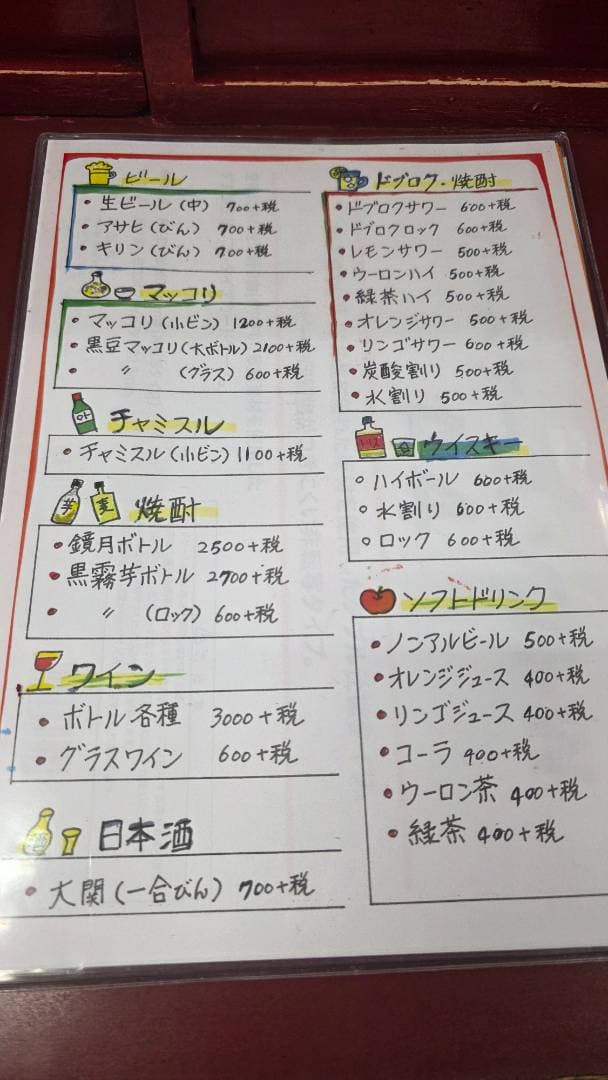 ビール
・生ビール(中) 700+税
・アサヒ(びん) 700+税
・キリン(びん) 700+税
マッコリ
・マッコリ(小ビン) 1200+税
・黒豆マッコリ(大ボトル) 2100+税
・〃 (グラス) 600+税
チャミスル
・チャミスル(小ビン) 1100+税
芋 麦 焼酎
・鏡月ボトル 2500+税
・黒霧芋ボトル 2700+税
・〃 (ロック) 600+税
ワイン
・ボトル各種 3000+税
・グラスワイン 600+税
日本酒
・大関(一合びん) 700+税
ドブロク・焼酎
・ドブロクサワー 600+税
・ドブロクロック 600+税
・レモンサワー 500+税
・ウーロンハイ 500+税
・緑茶ハイ 500+税
・オレンジサワー 500+税
・リンゴサワー 600+税
・炭酸割り 500+税
・水割り 500+税
ウイスキー
○ハイボール 600+税
○水割り 600+税
○ロック 600+税
ソフトドリンク
・ノンアルビール 500+税
・オレンジジュース 400+税
・リンゴジュース 400+税
・コーラ 400+税
・ウーロン茶 400+税
・緑茶 400+税